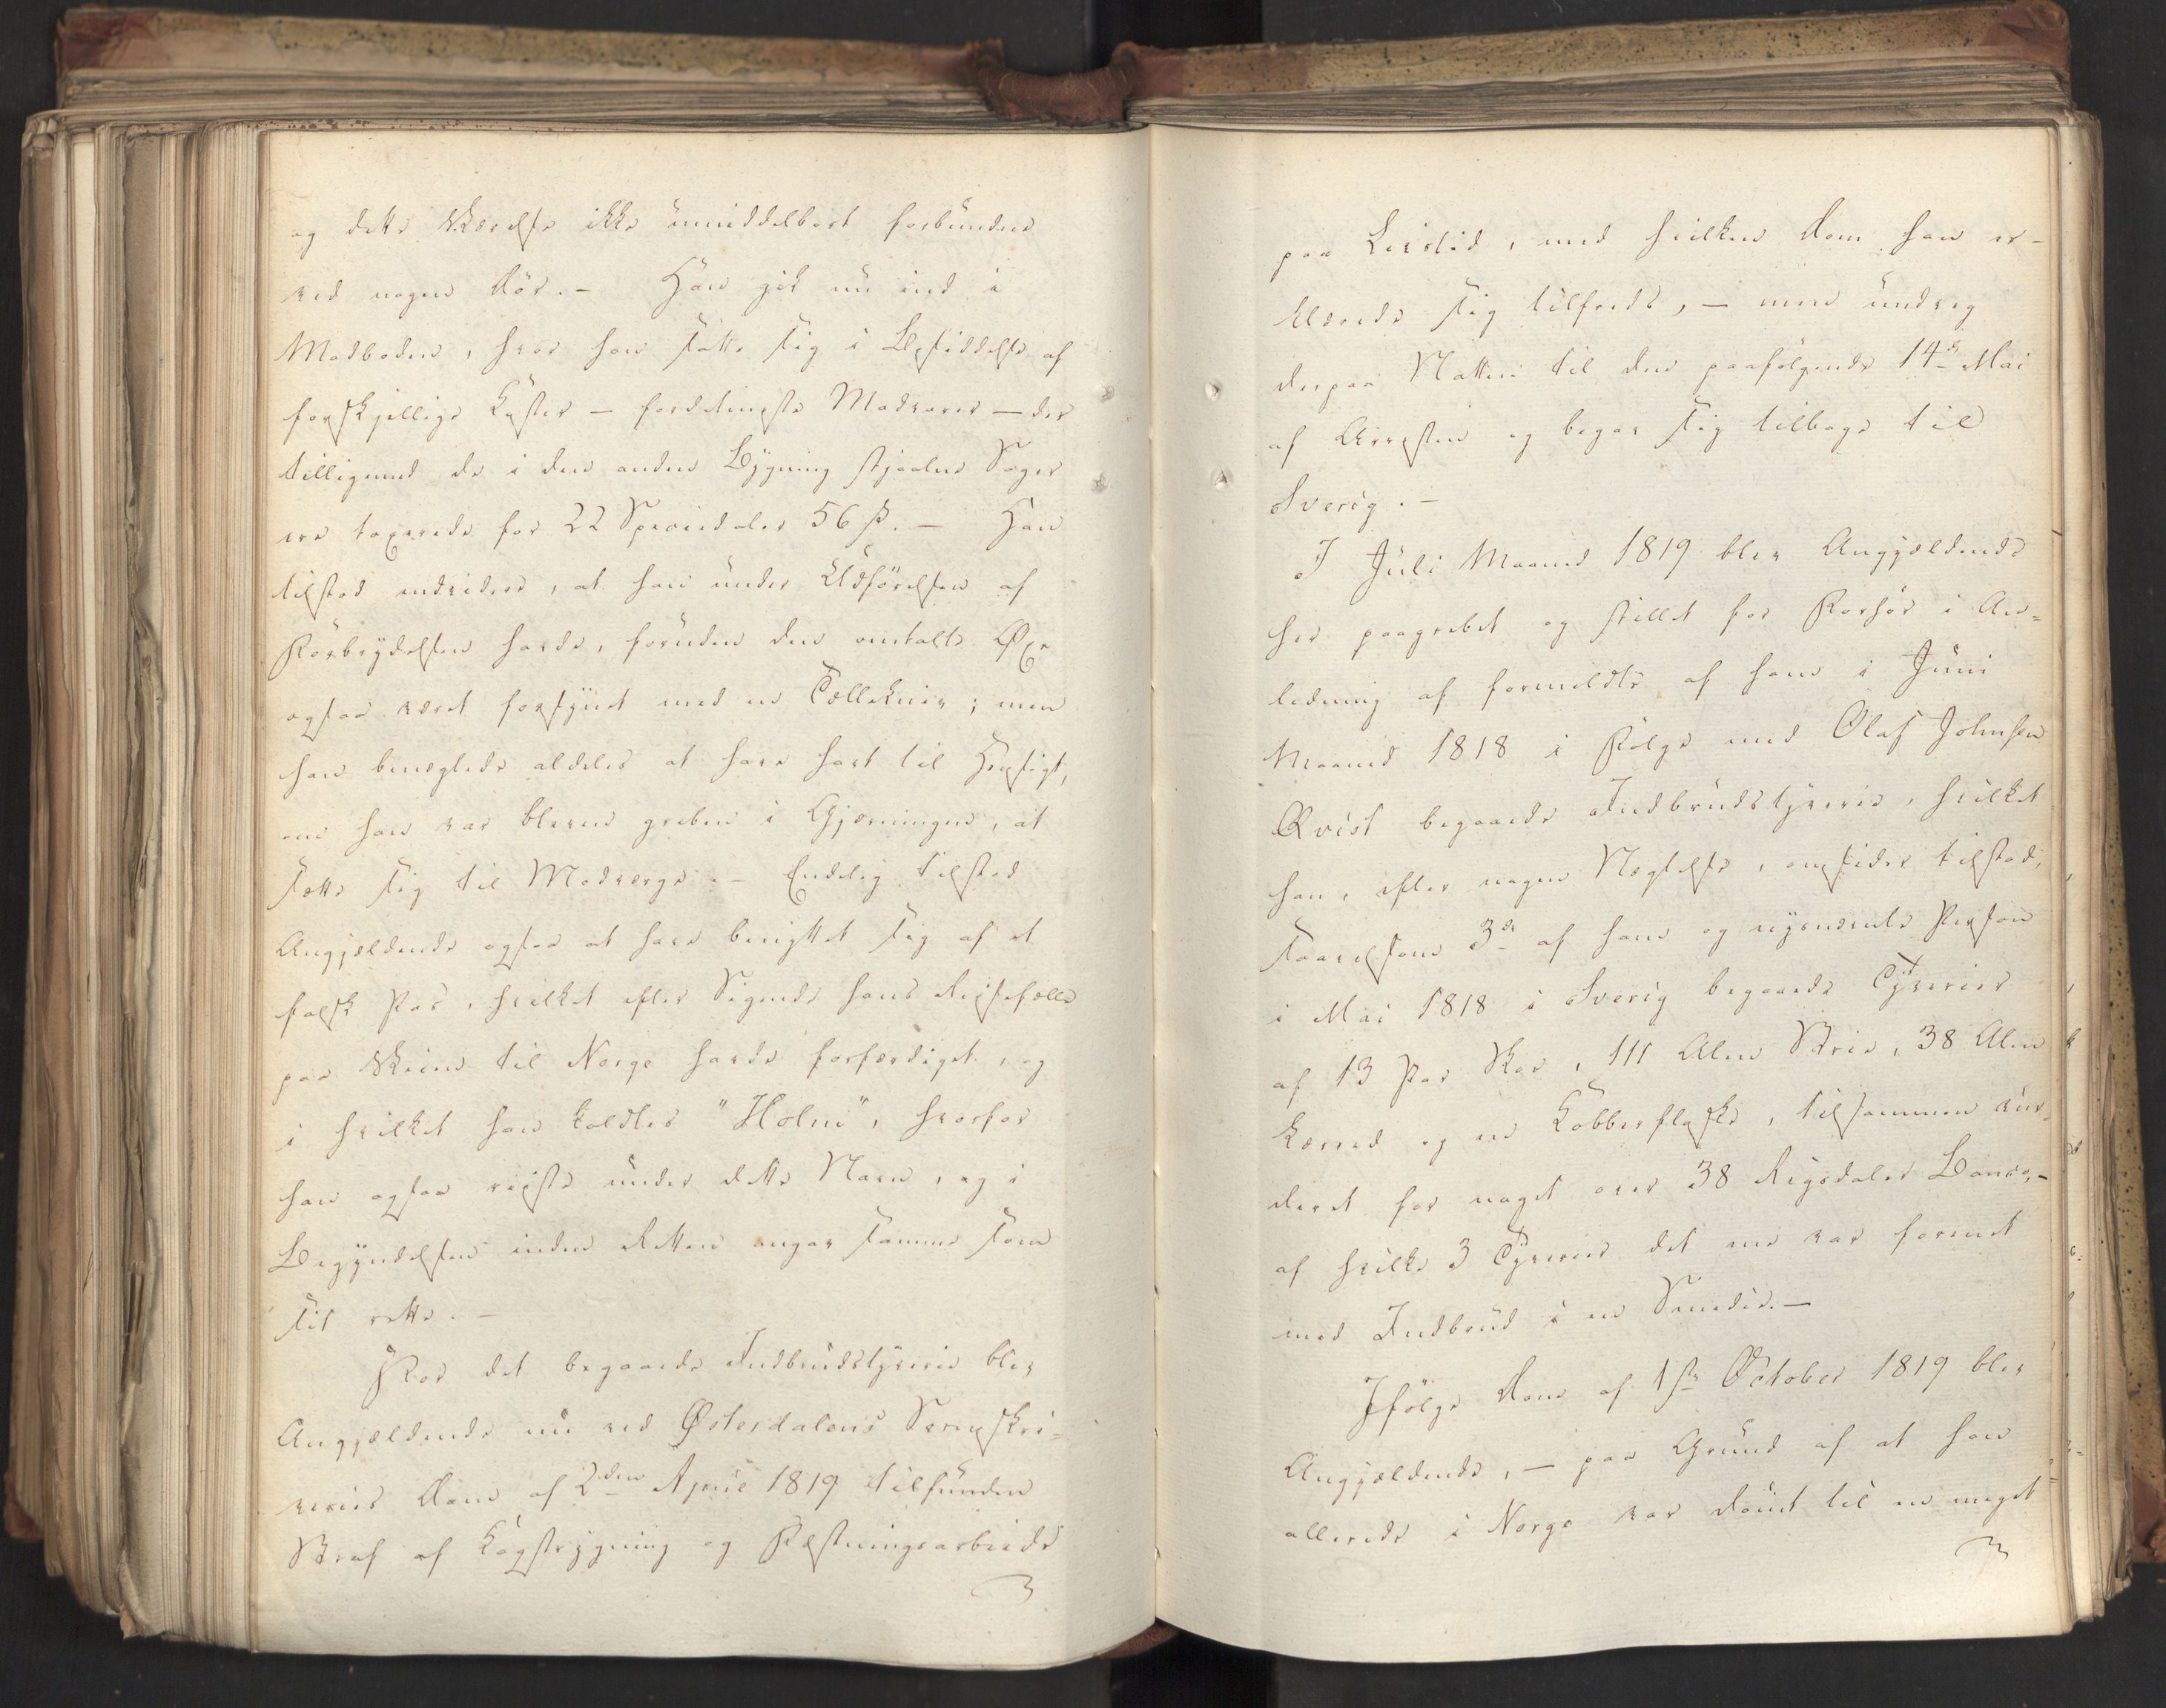 og dette Værelse ikke umiddelbart forbunden
ved nogen Dör. – Han gik nu ind i
Madboden, hvor han satte sig i Besiddelse af
forskjellige Kister – fordetmeste Madvarer – der
tilligemed de i den anden Bygning stjaalne Sager
ere taxerede for 22 Speciedaler 56 ß. – Han
tilstod endvidere, at han under Udförelsen af
Forbrydelsen havde, foruden den omtalte Øxe
ogsaa været forsynet med en Tollekniv; men
han benegtede aldeles at have havt til Hensigt,
om han var bleven greben i Gjerningen, at
sætte sig til Modværge. – Endelig tilstod
Angjældende ogsaa at have benyttet sig af et
falsk Pas, hvilket efter Sigende hans Reisefælle
paa Veien til Norge havde forfærdiget, og
i hvilket han kaldtes "Holm", hvorfor
han ogsaa reiste under dette Navn, og i
Begyndelsen inden Retten angav samme som
sit rette. –
For det begaaede Indbrudstyverie blev
Angjældende nu ved Østerdalens Sorenskri=
veries Dom af 2den April 1819 tilfunden
Straf af Kagstrygning og Fæstningsarbeide
paa Livstid, med hvilken Dom han er-
klærede sig tilfreds, – men undveg
derpaa Natten til den paafölgende 14de Mai
af Arresten og begav sig tilbage til
Sverig. –
I Juli Maaned 1819 blev Angjældende
her paagrebet og stillet for Forhör i An=
ledning af formeldte af ham i Juni
Maaned 1818 i Fölge med Olaf Johnsen
Qvist begaaede Indbrudstyverie, hvilket
han, efter nogen Negtelse, omsider tilstod,
saavelsom 3de af ham og nysnævnte Person
i Mai 1818 i Sverig begaaede Tyverier
af 13 Par Skoe, 111 Alen Strie, 38 Alen
Lærred og en Kobberflaske, tilsammen vur-
deret for noget over 38 Rigsdaler Banco,–
af hvilke 3 Tyverier det ene var forenet
med Indbrud i en Smedie. –
Ifölge Dom af 1ste October 1819 blev
Angjældende, – paa Grund af at han
allerede i Norge var dömt til en meget